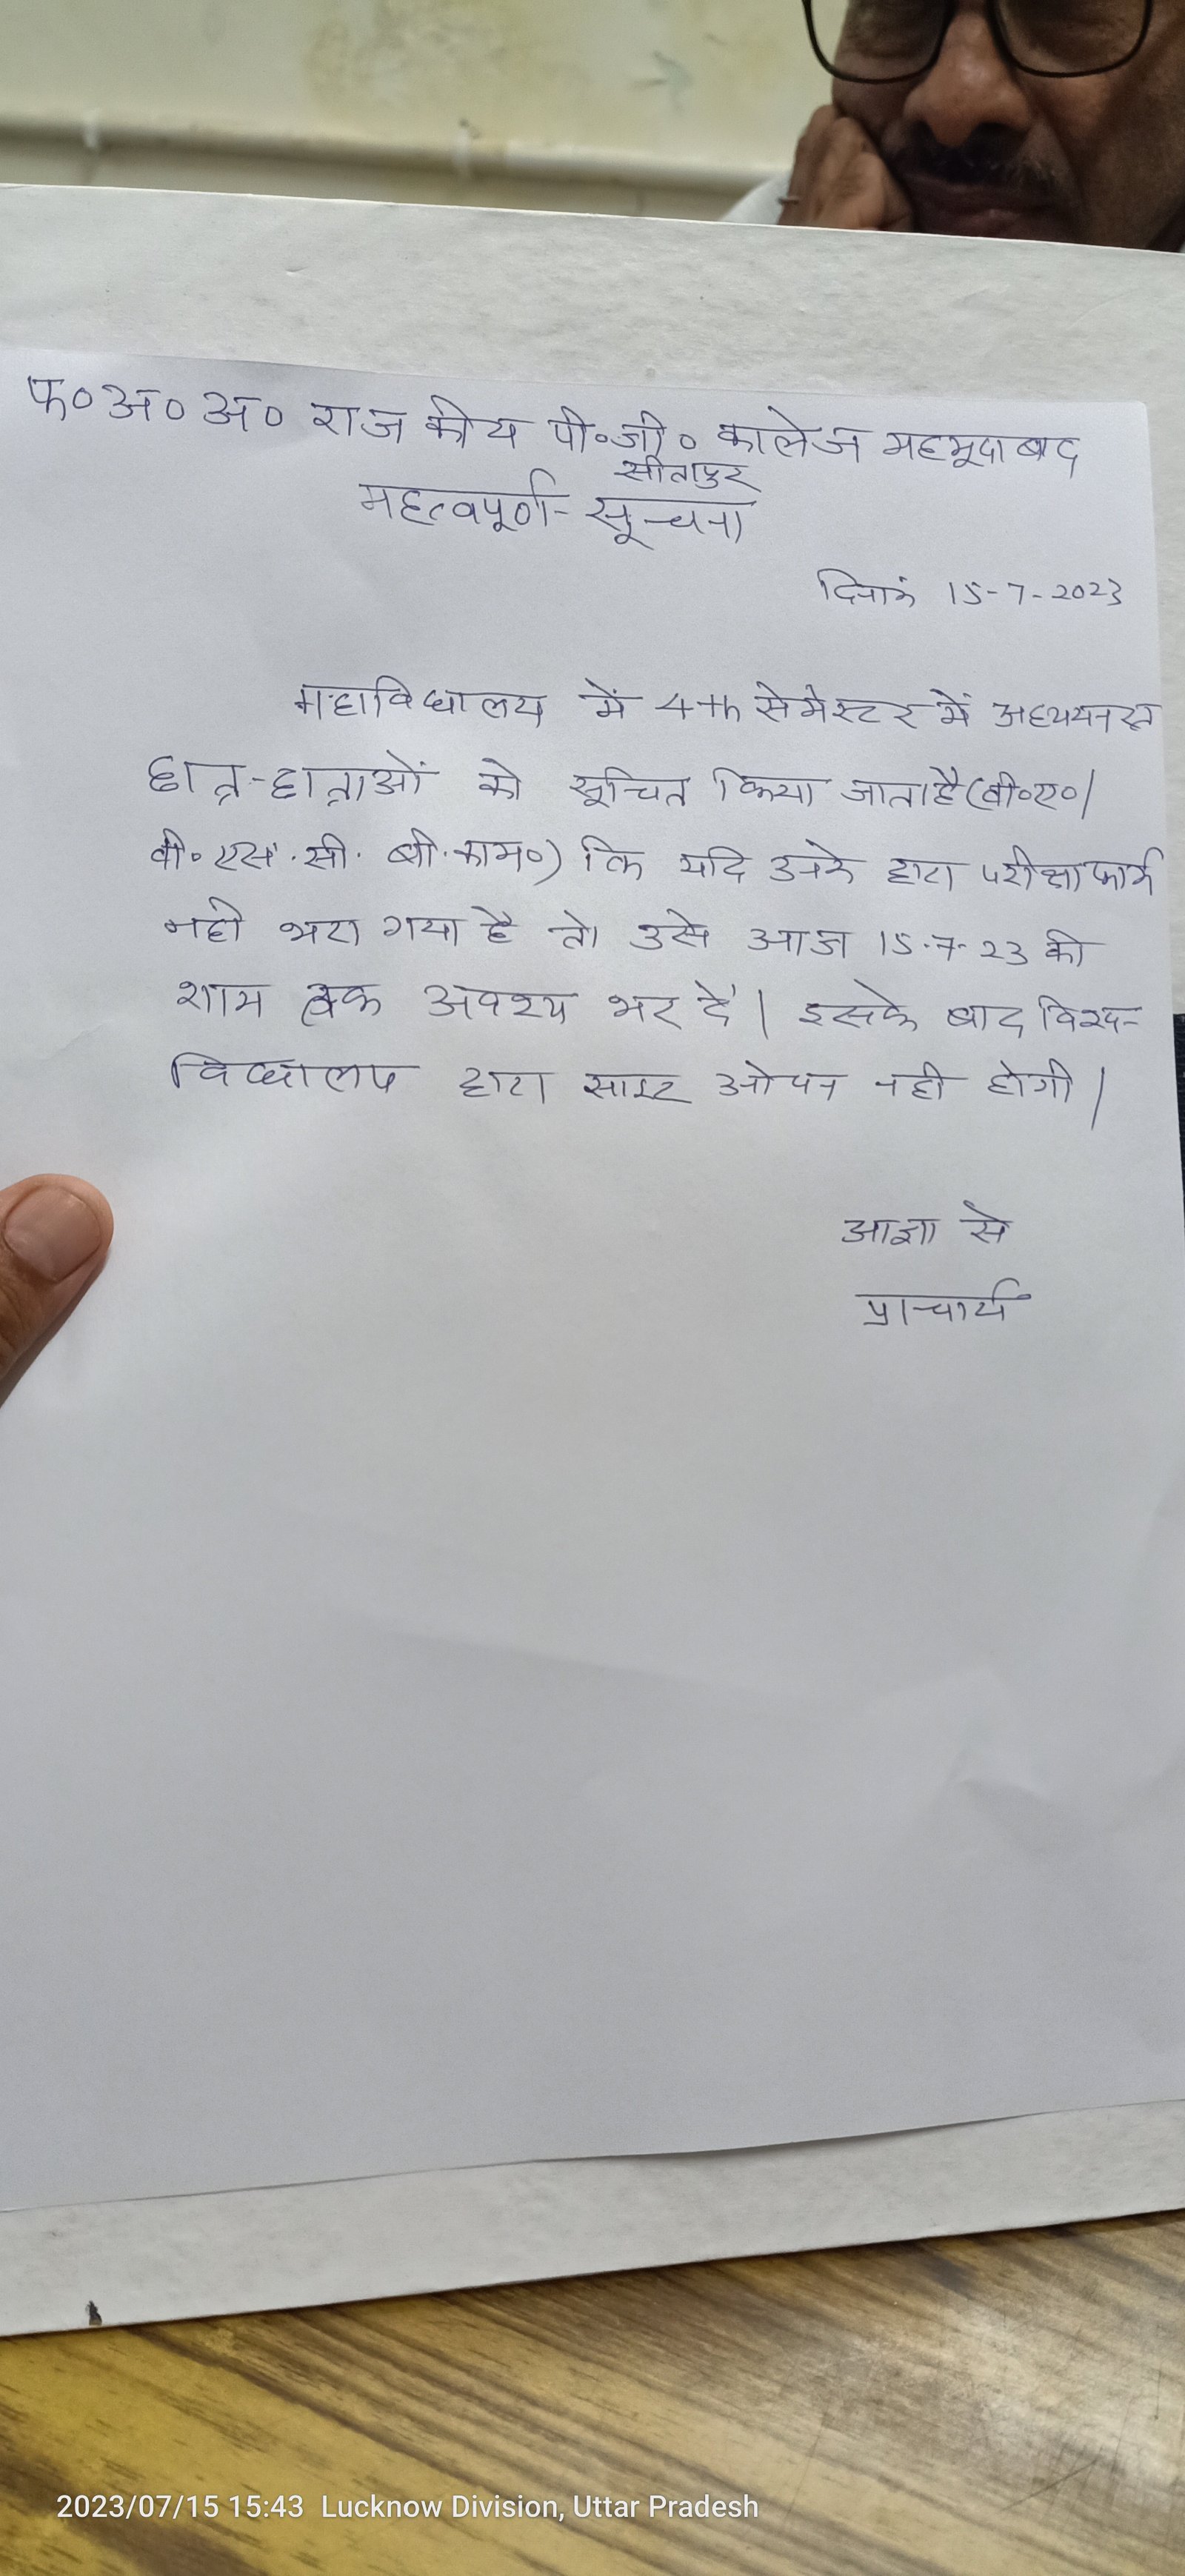 फ० अ० अ० राजकीय पी०जी० कालेज महमूदाबाद
सीतापुर
महत्वपूर्ण- सूचना
दिनांक 15-7-2023
महाविद्यालय में 4th सेमेस्टर में अध्ययनरत
छात्र-छात्राओं को सूचित किया जाता है (बी०ए०/
बी०एस.सी. बी.काम०) कि यदि उनके द्वारा परीक्षा फार्म
नही भरा गया है तो उसे आज 15.7.23 की
शाम तक अवश्य भर दें। इसके बाद विश्व-
विद्यालय द्वारा साइट ओपन नही होगी।
आज्ञा से
प्राचार्य
2023/07/15 15:43 Lucknow Division, Uttar Pradesh